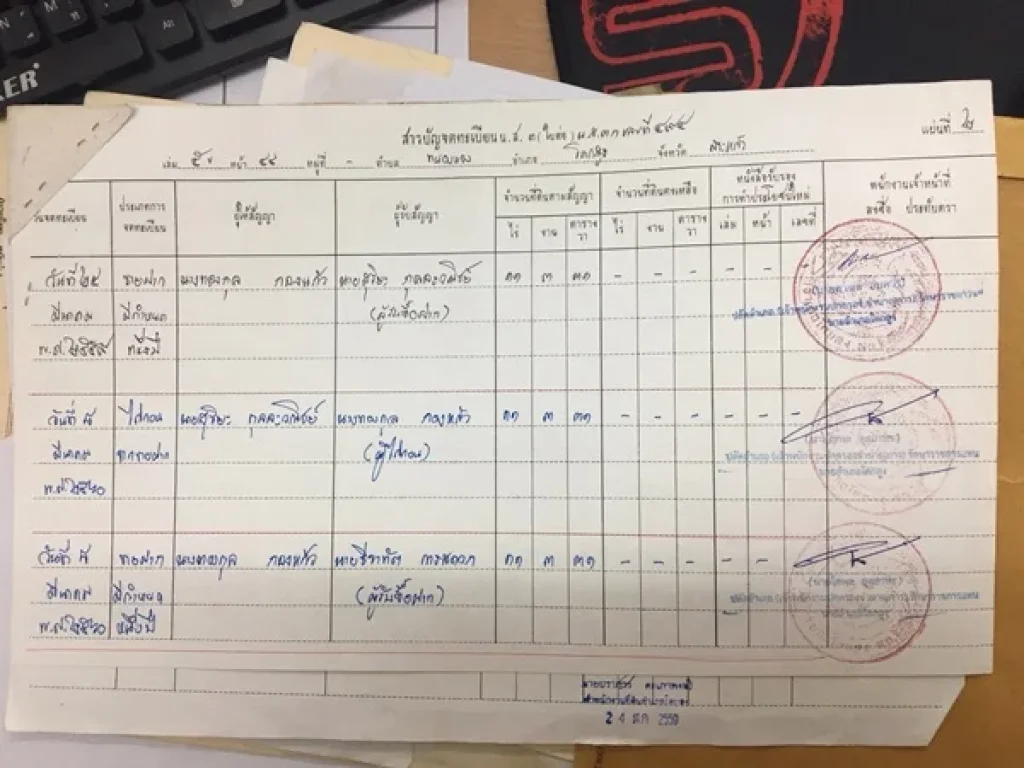 สารบัญจดทะเบียน น.ส. ๓ (ใบต่อ) น.ส.๓ก เลขที่ ๔๙๕
แผ่นที่ ๒
เล่ม ๕ข หน้า ๔๕ หมู่ที่ - ตำบล หนองแวง อำเภอ โคกสูง จังหวัด สระแก้ว
วันจดทะเบียน
ประเภทการ
จดทะเบียน
ผู้ให้สัญญา
ผู้รับสัญญา
จำนวนที่ดินตามสัญญา
ไร่ งาน ตาราง
วา
จำนวนที่ดินคงเหลือ
ไร่ งาน ตาราง
วา
หนังสือรับรอง
การทำประโยชน์ใหม่
เล่ม หน้า เลขที่
พนักงานเจ้าหน้าที่
ลงชื่อ ประทับตรา
วันที่ ๒๕ ขายฝาก นางทองกูล กองแก้ว นายสุริยะ ๑๑ ๓ ๓๑ - - - - - -
มีนาคม มีกำหนด (ผู้รับซื้อฝาก)
พ.ศ. ๒๕๕๙ หนึ่งปี
วันที่ ๘ ไถ่ถอน นายสุริยะ นางทองกูล กองแก้ว ๑๑ ๓ ๓๑ - - - - - -
มีนาคม จากขายฝาก (ผู้ไถ่ถอน)
พ.ศ. ๒๕๖๐
ปลัดอำเภอ (เจ้าพนักงานปกครองชำนาญการ) รักษาราชการแทน
นายอำเภอโคกสูง
วันที่ ๘ ขายฝาก นางทองกูล กองแก้ว ๑๑ ๓ ๓๑ - - - - - -
มีนาคม มีกำหนด (ผู้รับซื้อฝาก)
พ.ศ. ๒๕๖๐ หนึ่งปี
ปลัดอำเภอ (เจ้าพนักงานปกครองชำนาญการ) รักษาราชการแทน
นายอำเภอโคกสูง
2 4 ตค 2550
Alt